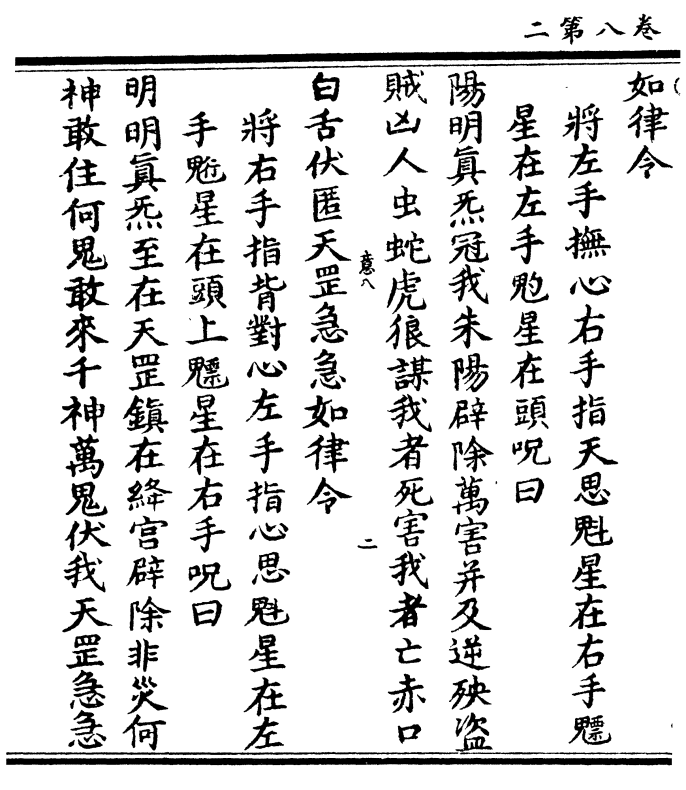 卷八第二
如律令
將左手撫心右手指天思魁星在右手魒
星在左手魡星在頭呪曰
陽明真炁冠我朱陽辟除萬害并及逆殃盗
賊凶人虫蛇虎狼謀我者死害我者亡赤口
意八
二
白舌伏匿天罡急急如律令
將右手指背對心左手指心思魁星在左
手魡星在頭上魒星在右手呪曰
明明真炁至在天罡鎮在絳宫辟除非災何
神敢住何鬼敢來千神萬鬼伏我天罡急急